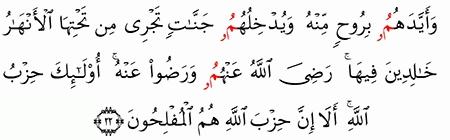 وَأَيَّدَهُمُۥ بِرُوحٍ مِّنْهُ وَيُدْخِلُهُمُۥ جَنَّـٰتٍ تَجْرِى مِن تَحْتِهَا الْأَنْهَـٰرُ
خَـٰلِدِينَ فِيهَا ۚ رَضِىَ اللَّهُ عَنْهُمُۥ وَرَضُوا۟ عَنْهُ ۚ أُو۟لَـٰٓئِكَ حِزْبُ
اللَّهِ ۚ أَلَا إِنَّ حِزْبَ اللَّهِ هُمُ الْمُفْلِحُونَ ﴿٢٢﴾